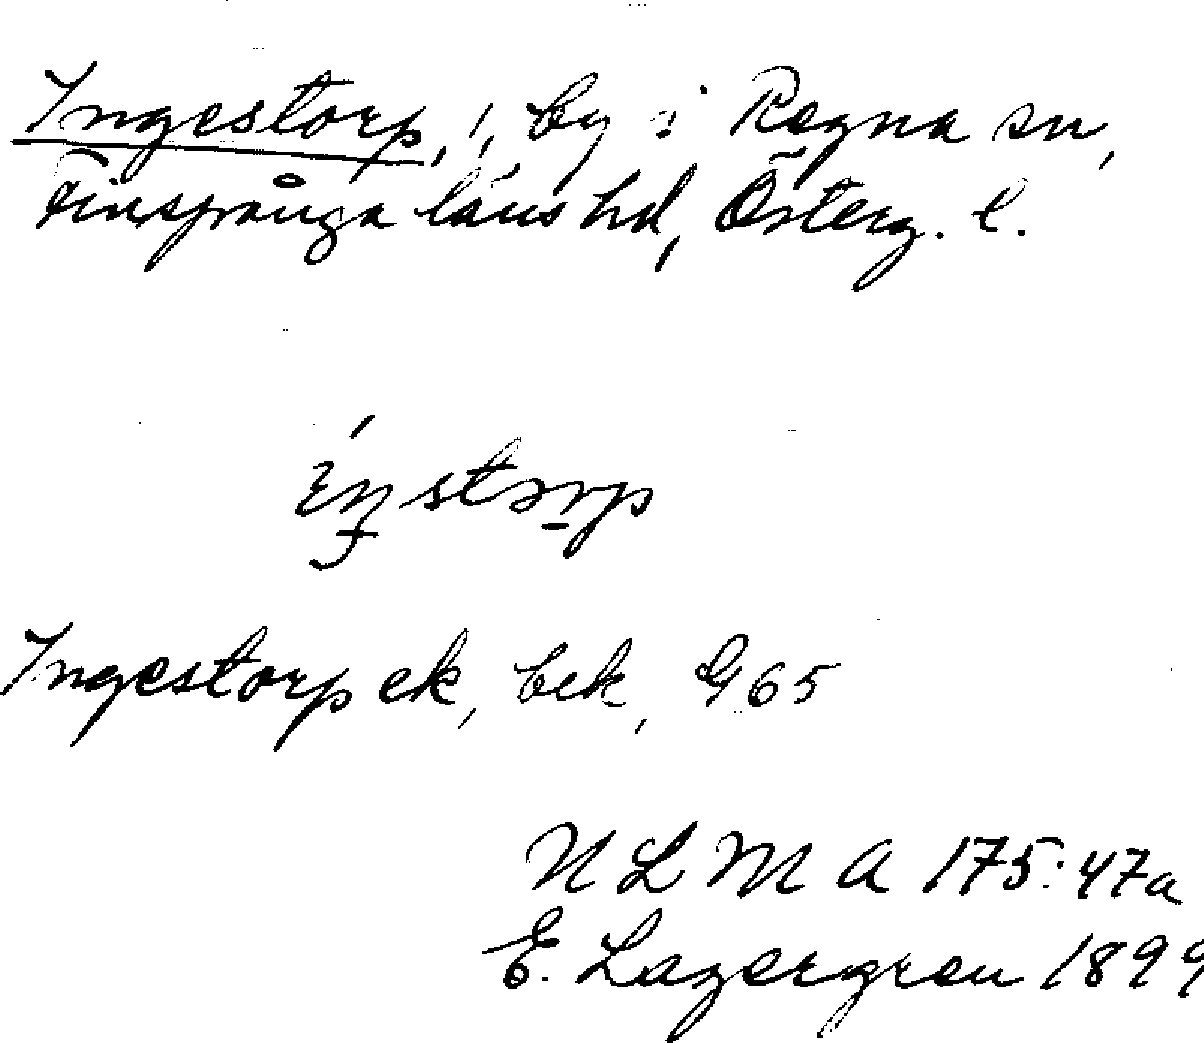 Ingestorp, !, by i Regna sn,
Finspånga läns hd, Österg. l.
Ingestorp ek, bek, G 65
N L M A 175:47a
E. Lagergren 1899